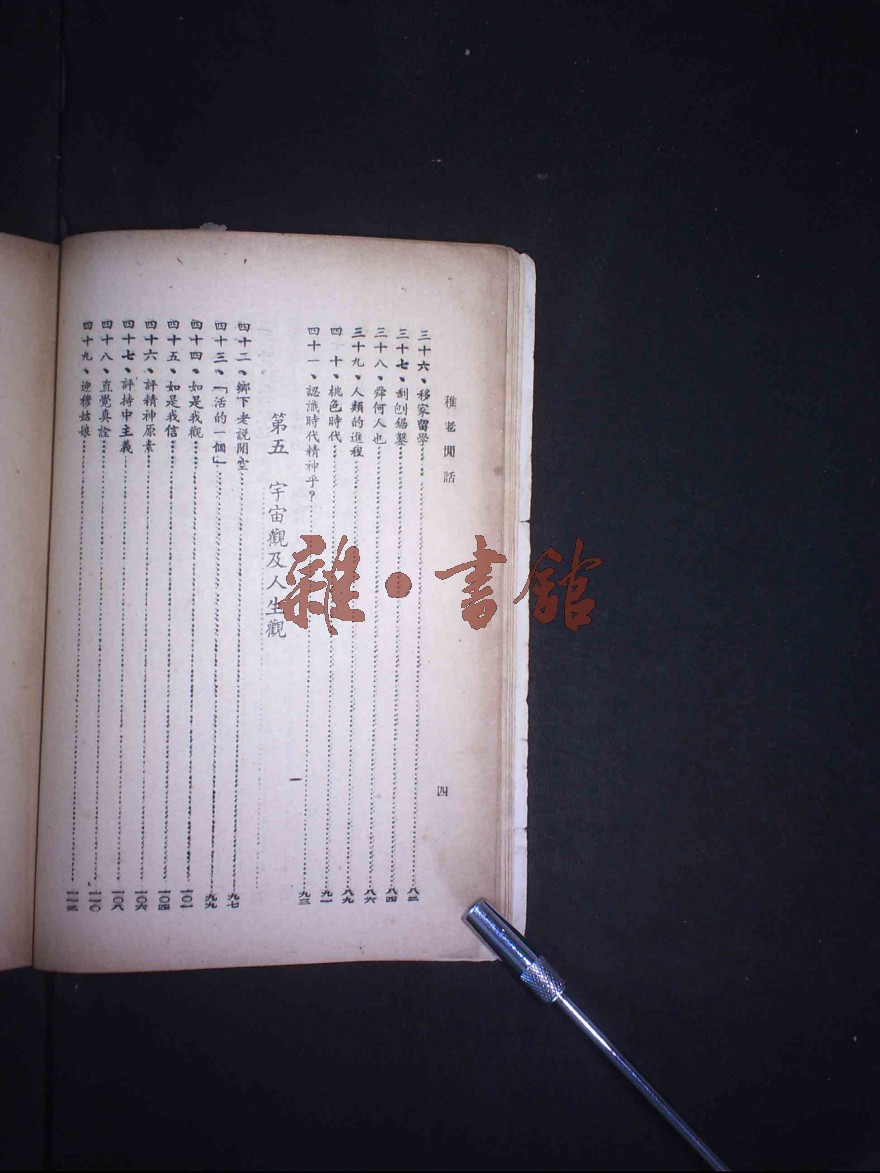 稚老閒話
四
三十六、移家留學……八二
三十七、刮刨鋸鑿……八四
三十八、舜何人也……八六
三十九、人類的進程……八九
四 十、桃色時代……九一
四十一、認識時代精神乎?……九三
第五 宇宙觀及人生觀
四十二、鄉下老說閒空……九七
四十三、「活的一個」……九九
四十四、如是我觀……一〇一
四十五、如是我信……一〇四
四十六、評精神原素……一〇六
四十七、評持中主義……一〇八
四十八、直覺真詮……一一〇
四十九、迎穆姑娘……一一三
雜·書館